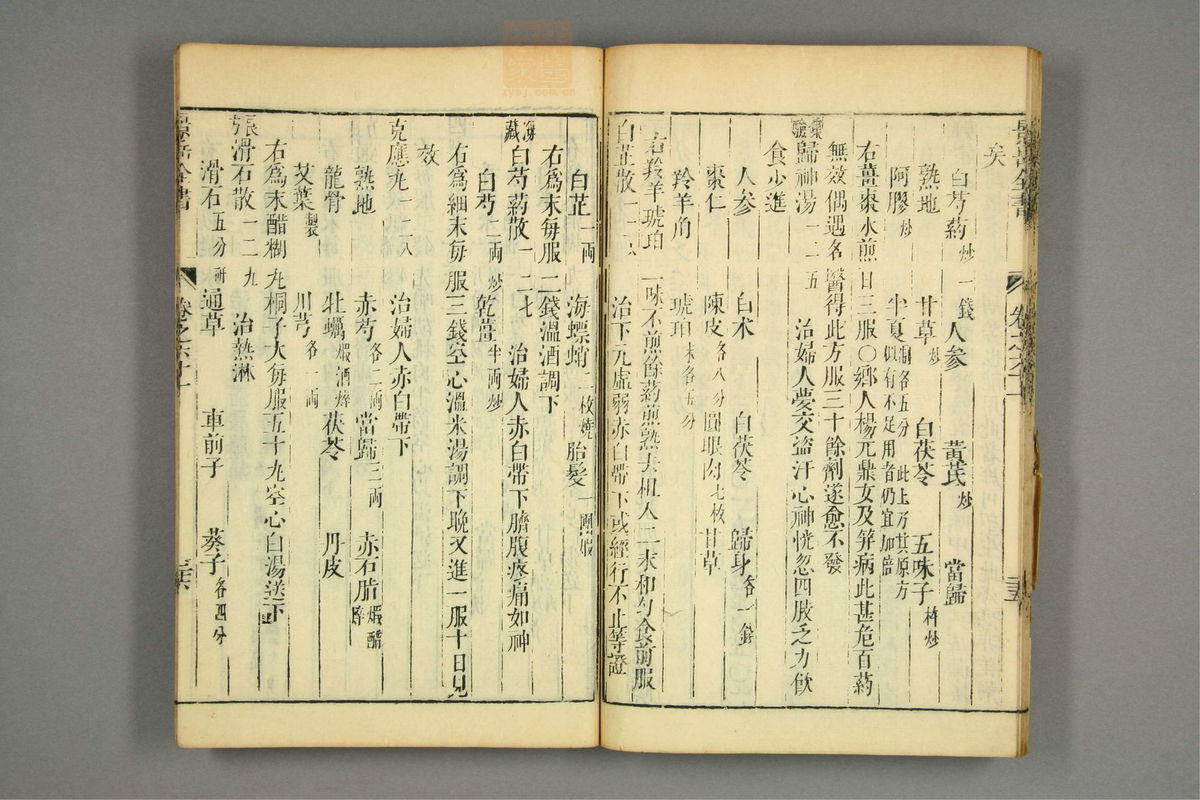 矣
白芍藥炒一錢 人參 黃芪炒 當歸
熟地 甘草炒 白茯苓 五味子杵炒
阿膠炒 半夏製各五分 此上乃其原方
似有不足用者仍宜加倍
右薑棗水煎日三服○鄉人楊元鼎女及笄病此甚危百藥
無效偶遇名醫得此方服三十餘劑遂愈不發
集驗歸神湯一一五 治婦人夢交盜汗心神恍忽四肢乏力飲
食少進
人參 白朮 白茯苓 歸身各一錢
棗仁 陳皮各八分 圓眼肉七枚 甘草
羚羊角 琥珀末各五分
右羚羊琥珀二味不煎餘藥煎熟去柤入二末和勻食前服
白芷散一一六 治下元虛弱赤白帶下或經行不止等證
白芷一兩 海螵蛸二枚燒 胎髮一團煅
右爲末每服二錢溫酒調下
海藏白芍藥散一一七 治婦人赤白帶下臍腹疼痛如神
白芍二兩炒 乾薑半兩炒
右爲細末每服三錢空心溫米湯調下晚又進一服十日見
效
克應丸一一八 治婦人赤白帶下
熟地 赤芍各二兩 當歸二兩 赤石脂煅醋淬
龍骨 牡蠣煅酒淬 茯苓 丹皮
艾葉製 川芎各一兩
右爲末醋糊丸桐子大每服五十丸空心白湯送下
張滑石散一一九 治熱淋
滑石五分研 通草 車前子 葵子各四分
景岳全書 卷之六十一 三五
景岳全書 卷之六十一 三六
zysj.com.cn